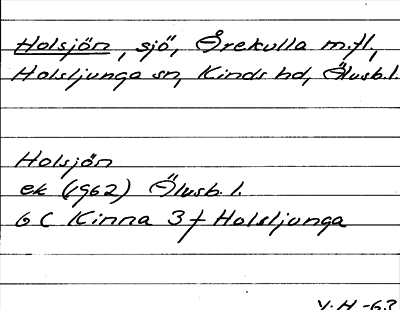 Holsjön, sjö, Årekulla m.fl.,
Holsljunga sn, Kinds hd, Älvsb. l.
Holsjön
ek (1962) Älvsb. l.
6 C Kinna 3 f Holsljunga
V. H -63